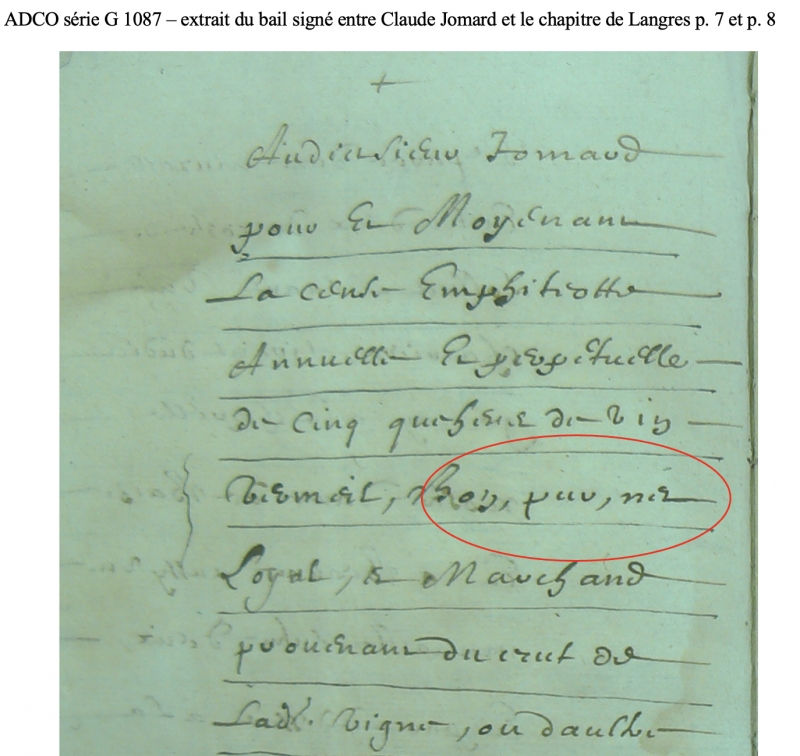 ADCO série G 1087 – extrait du bail signé entre Claude Jomard et le chapitre de Langres p. 7 et p. 8
+
Audict Sieur Jomard
pour Et Moyénant
La cense Emphiteotte
Annuelle Et perpétuelle
de Cinq queheue de vin
vermeil, Bon, pur, net
Loyal, & Marchand
provenant du crut de
Lad. vigne, ou daultre